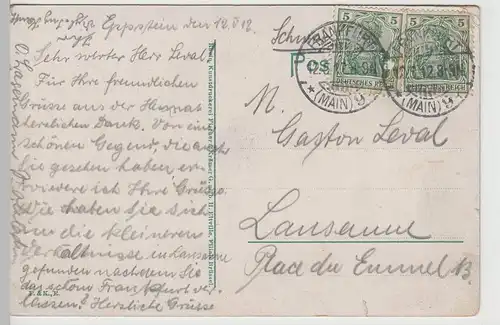 Eppstein den 12.8.12.
Sehr werter Herr Leval.
Für Ihre freundlichen
Grüsse aus der Heimat
herzlichen Dank. Von einer
schönen Gegend, die auch
Sie gesehen haben er-
widere ich Ihre Grüsse.
Wie haben Sie sich
in die kleineren
Verhältnisse in Lausanne
gefunden nachdem Sie
das schöne Frankfurt ver-
lassen? Herzliche Grüsse
Ihr
POS
5 5
DEUTSCHES REICH
FRANKFURT
12.8.12.
* (MAIN) 9
FRANKFURT
12.8.12.
* (MAIN) 9
M.
Gaston Leval
Lausanne
Place du Tunnel 13.